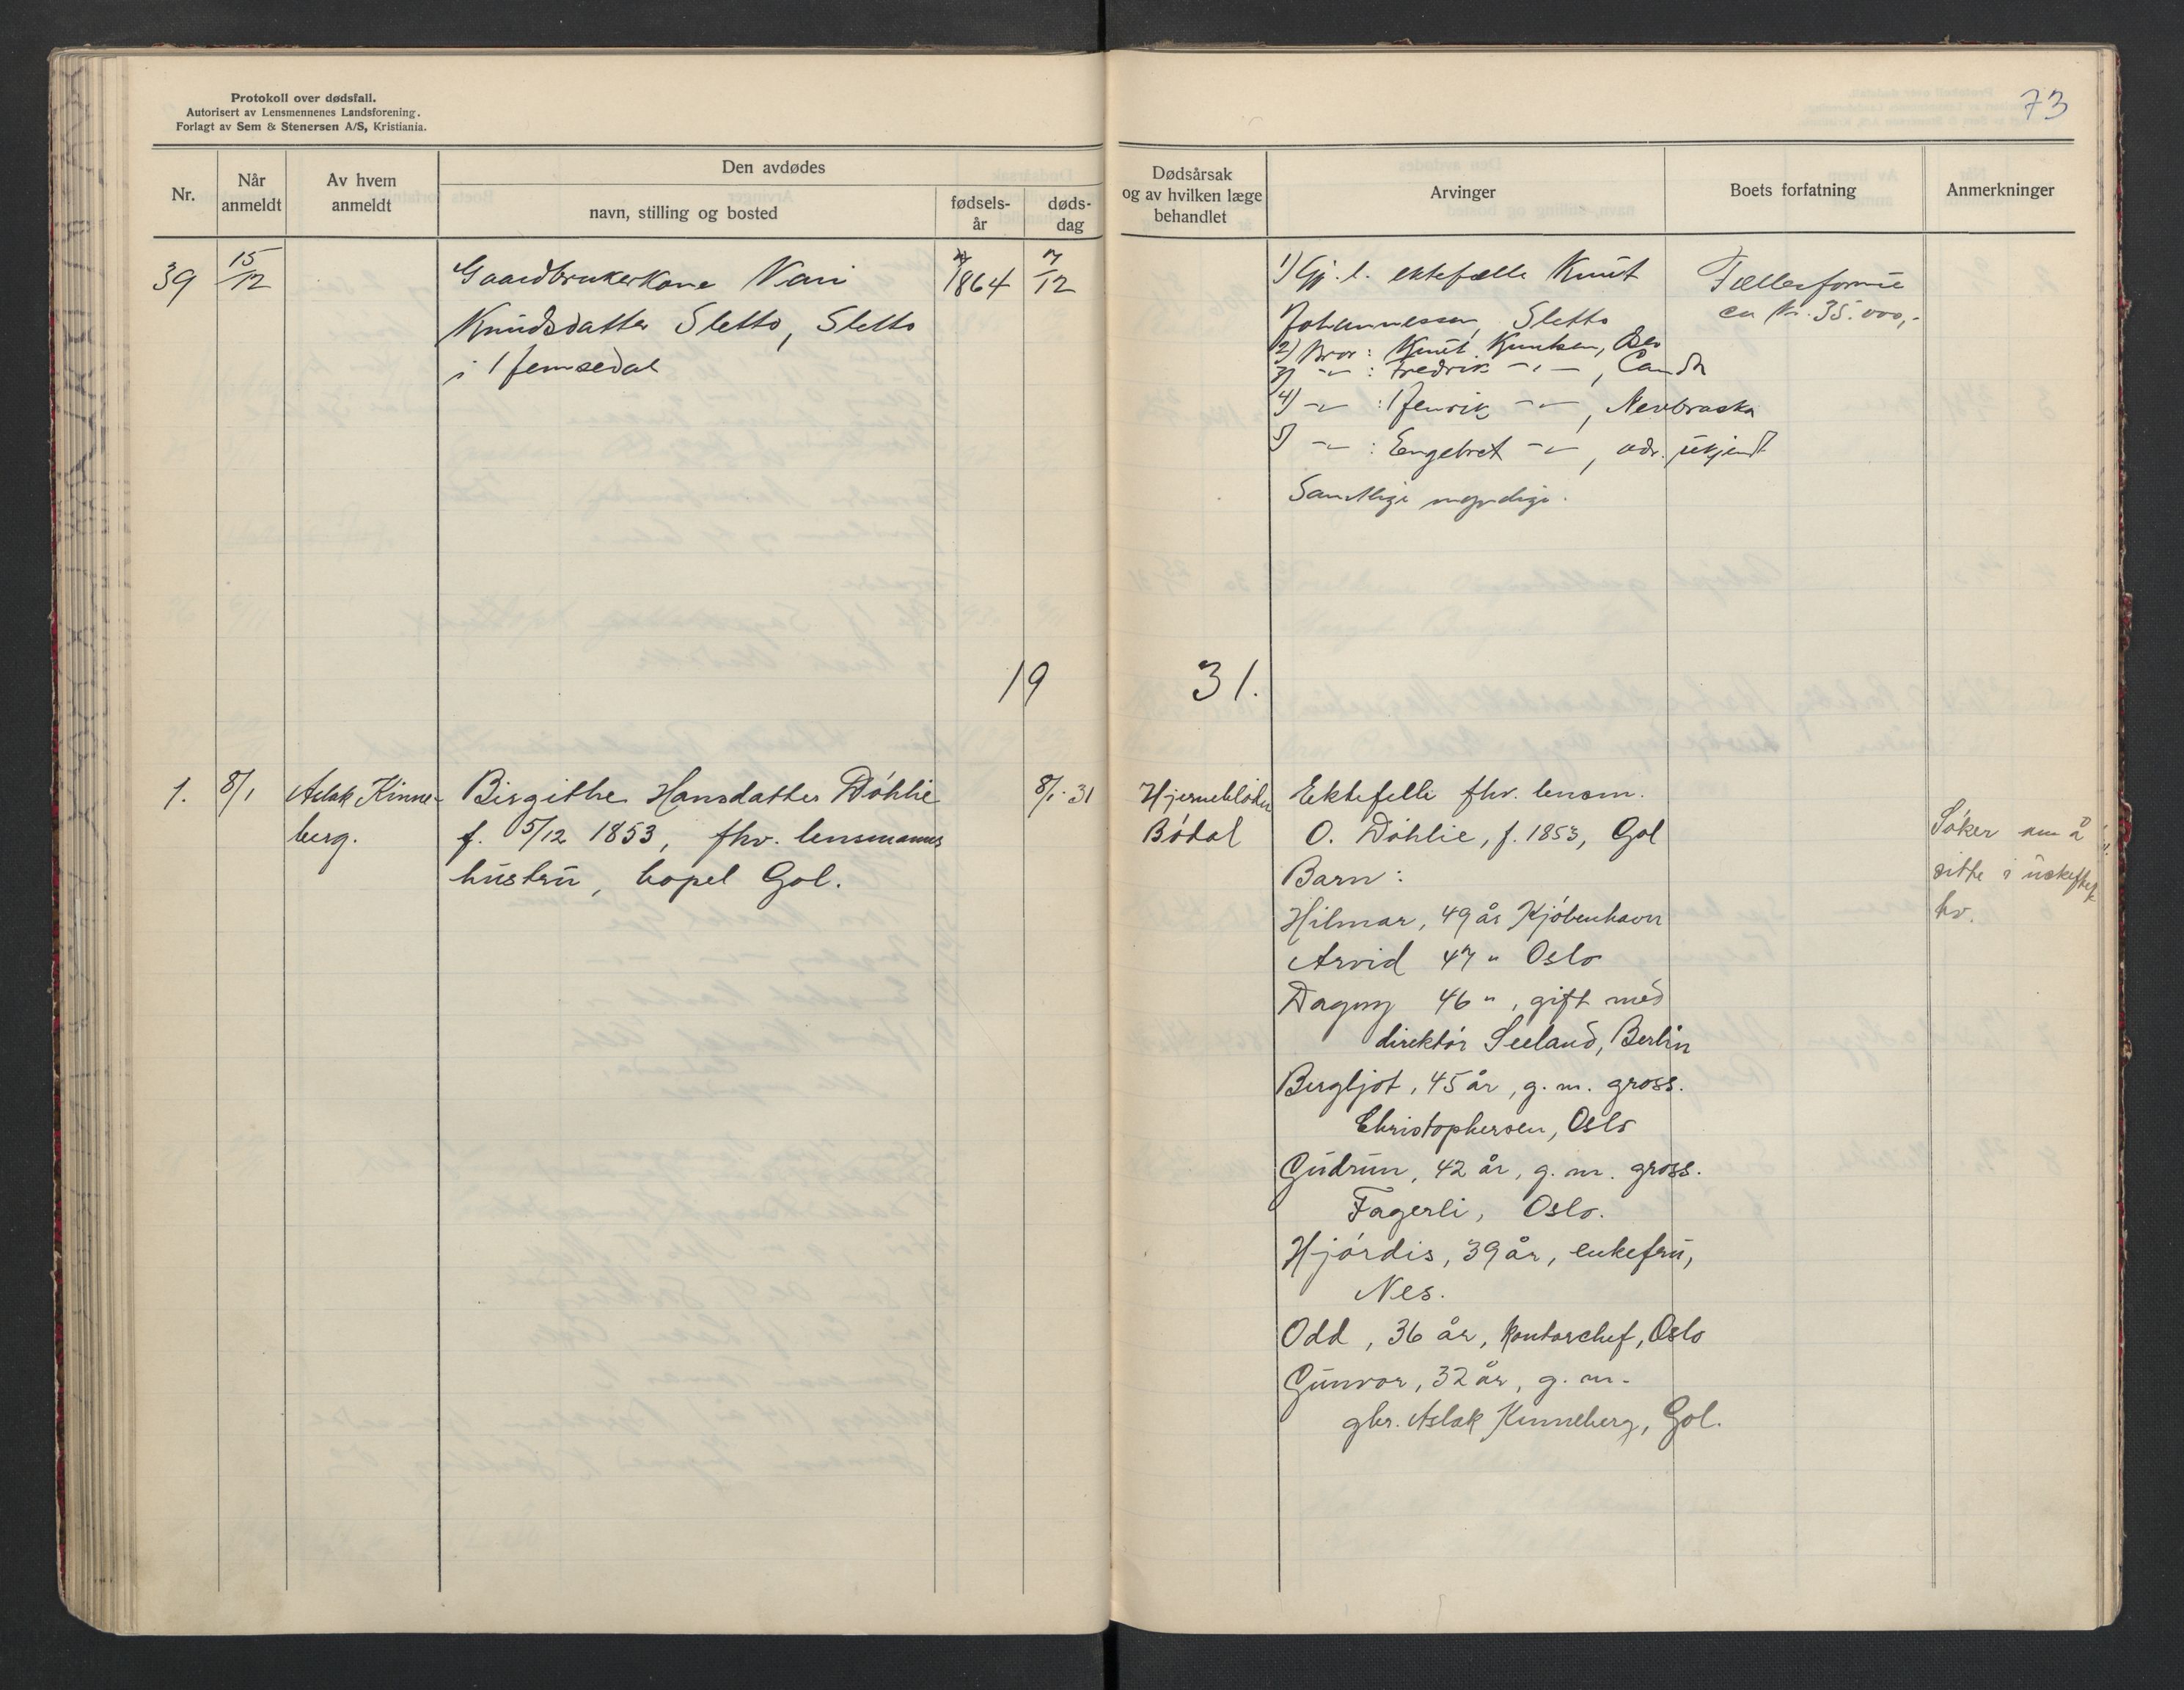 Protokoll over dødsfall.
Autorisert av Lensmennenes Landsforening.
Forlagt av Sem & Stenersen A/S, Kristiania.
73
Nr.
Når anmeldt
Av hvem anmeldt
Den avdødes
navn, stilling og bosted
fødsels-år
døds-dag
Dødsårsak og av hvilken læge behandlet
Arvinger
Boets forfatning
Anmerkninger
39
15/12
Gaardbrukerkone Nari
Knudsdatter Sletto, Sletto
i Hemsedal
1864
7/12
1) Gj. l. ektefælle Knut
Johannessen Sletto
2) Bror: Knut Knutsen,
3) -"- : Fredrik -"-,
4) -"- : Henrik -"-, Nevbraska
5) -"- : Engebret -"-, adr. ukjent
Samtlige myndige.
Fællesformue
ca kr. 35.000,-
1931.
1.
8/1
Aslak Kinne-
berg.
Birgithe Hansdatter Döhlie
f. 5/12 1853, fhv. lensmanns
hustru, bopel Gol.
8/1-31
Hjerneblödn
Bödal
Ektefelle fhv. lensm.
O. Döhlie, f. 1853, Gol
Barn:
Hilmar, 49 år Kjöbenhavn
Arvid 47 " Oslo
Dagny 46 ", gift med
direktör Seeland, Berlin
Bergljot, 45 år, g. m. gross.
Christophersen, Oslo
Gudrun, 42 år, g. m. gross.
Fagerli, Oslo.
Hjördis, 39 år, enkefru,
Nes.
Odd, 36 år, kontorchef, Oslo
Gunvor, 32 år, g. m.
gbr. Aslak Kinneberg, Gol.
Söker om å
sitte i uskiftet